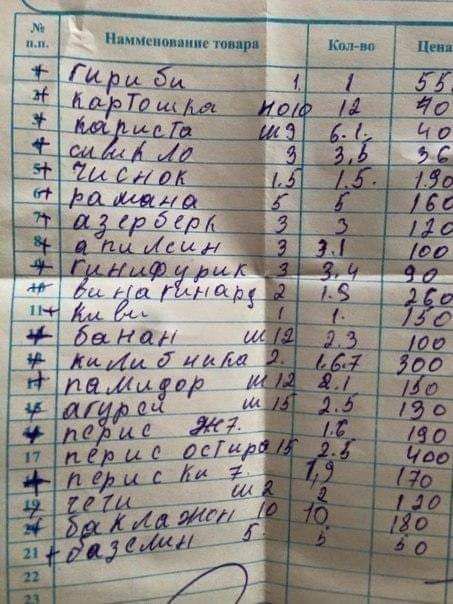 № п.п. Наимменование товара Кол-во Цена
1 гириби 1. 1 55
2 картошка 12 40
3 кариста ш9 6.1. 40
4 3 3,5 36
5 чиснок 1.5 1.5. 190
6 рамана 5 5 160
7 азерберк 3 3 120
8 апилсин 3 3.1 100
9 гинифурик 3 3,4 90
10 винагинард 2 1.9 260
11 киви 1 1. 150
банан ш12 2.3 100
килибника 2. 1.6.7 300
памидор ш12 2.1 150
15 агурси ш15 2.5 130
перис ж7. 1.6 190
17 перис остиро 15 2.5 400
перис ки 7. 1,9 170
19 чети ш2 2 120
20 баклажен 10 10 180
21 базелин 5. 5 50
22
23